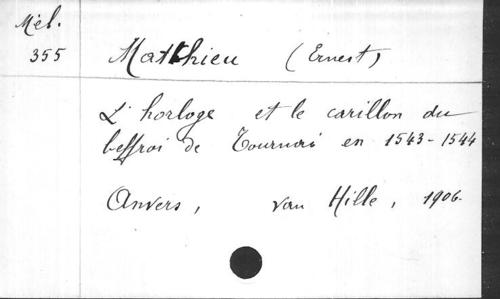 Mél.
355
Matthieu (Ernest)
L'horloge et le carillon du
beffroi de Tournai en 1543-1544
Anvers, van Hille, 1906.